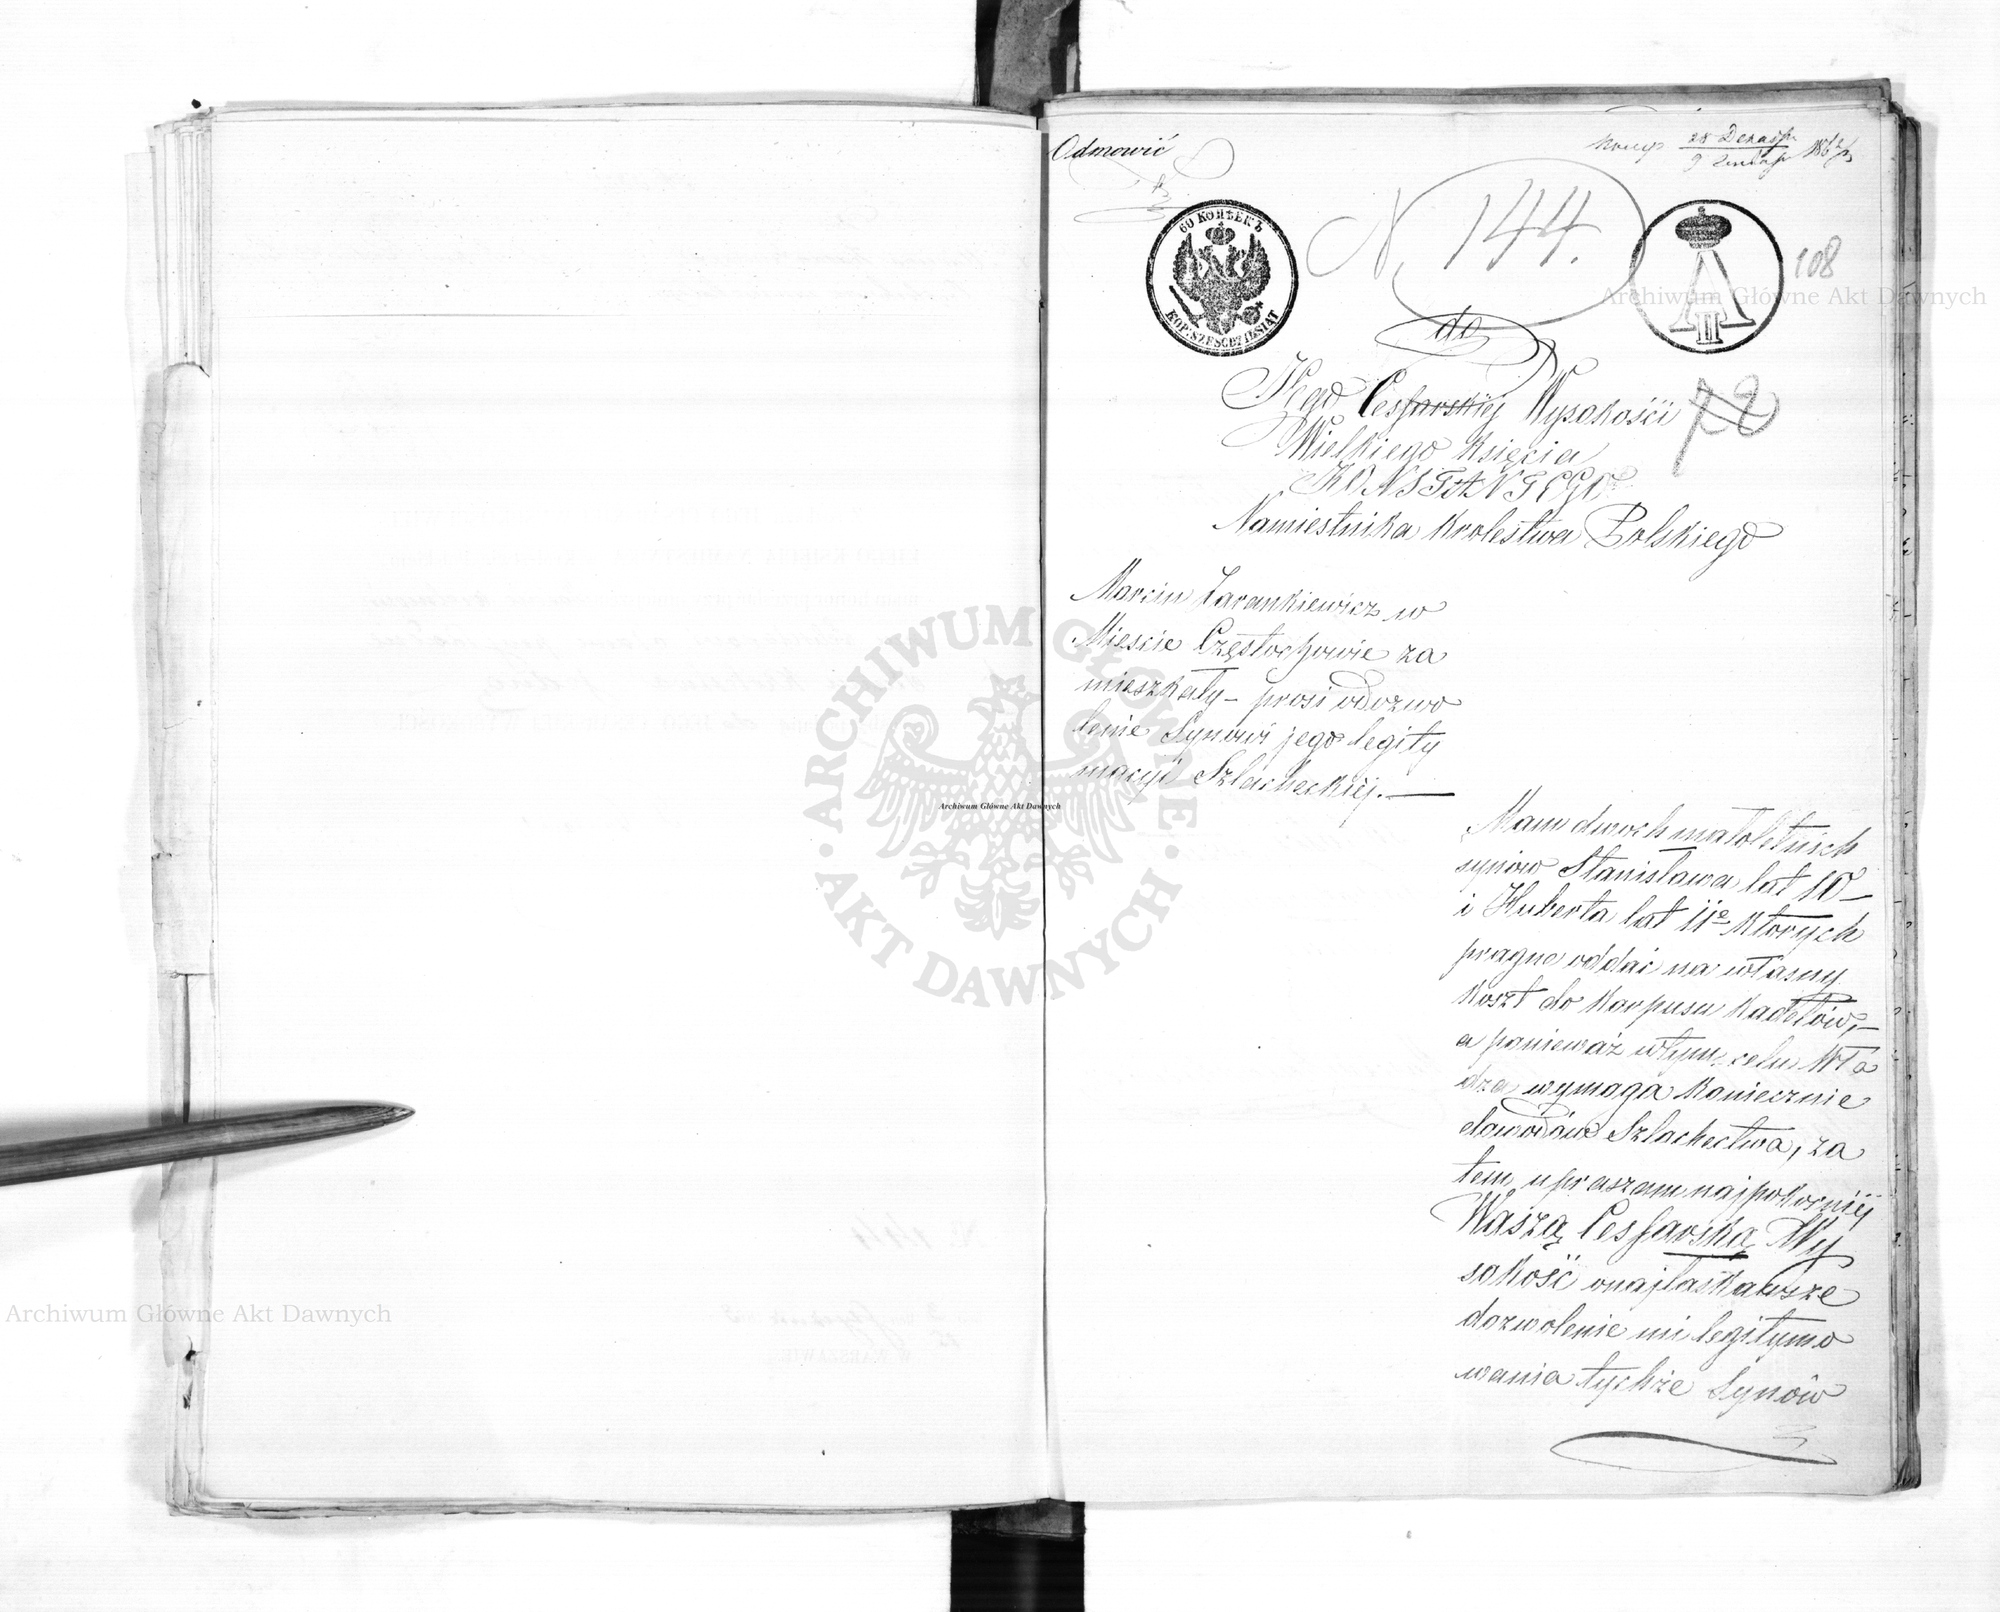 Odmowić
28 Декабр.
9 Январ 1862/3
N. 144.
60 КОПѢЕКЪ
KOP: SZEŚĆDZIESIĄT
A II
108
72
do
Jego Cesarskiej Wysokości
Wielkiego Księcia
KONSTANTEGO
Namiestnika Krolestwa Polskiego
Marcin Zarankiewicz w
Mieście Częstochowie za
mieszkały – prosi o dozwo
lenie Synowi jego legity
macyi Szlacheckiéj. —
Mam dwoch małoletnich
synów Stanisława lat 10 –
i Huberta lat 11e których
pragne oddać na własny
koszt do Korpusu Kadetów, –
a ponieważ w tym celu Wła
dza wymaga koniecznie
dowodów Szlachectwa, za
tem upraszam najpokorniéj
Waszą Cesarską Wy
sokość o najłaskawsze
dozwolenie mi legitymo
wania tychże Synów
Archiwum Główne Akt Dawnych
ARCHIWUM GŁÓWNE
AKT DAWNYCH
Archiwum Główne Akt Dawnych
Archiwum Główne Akt Dawnych